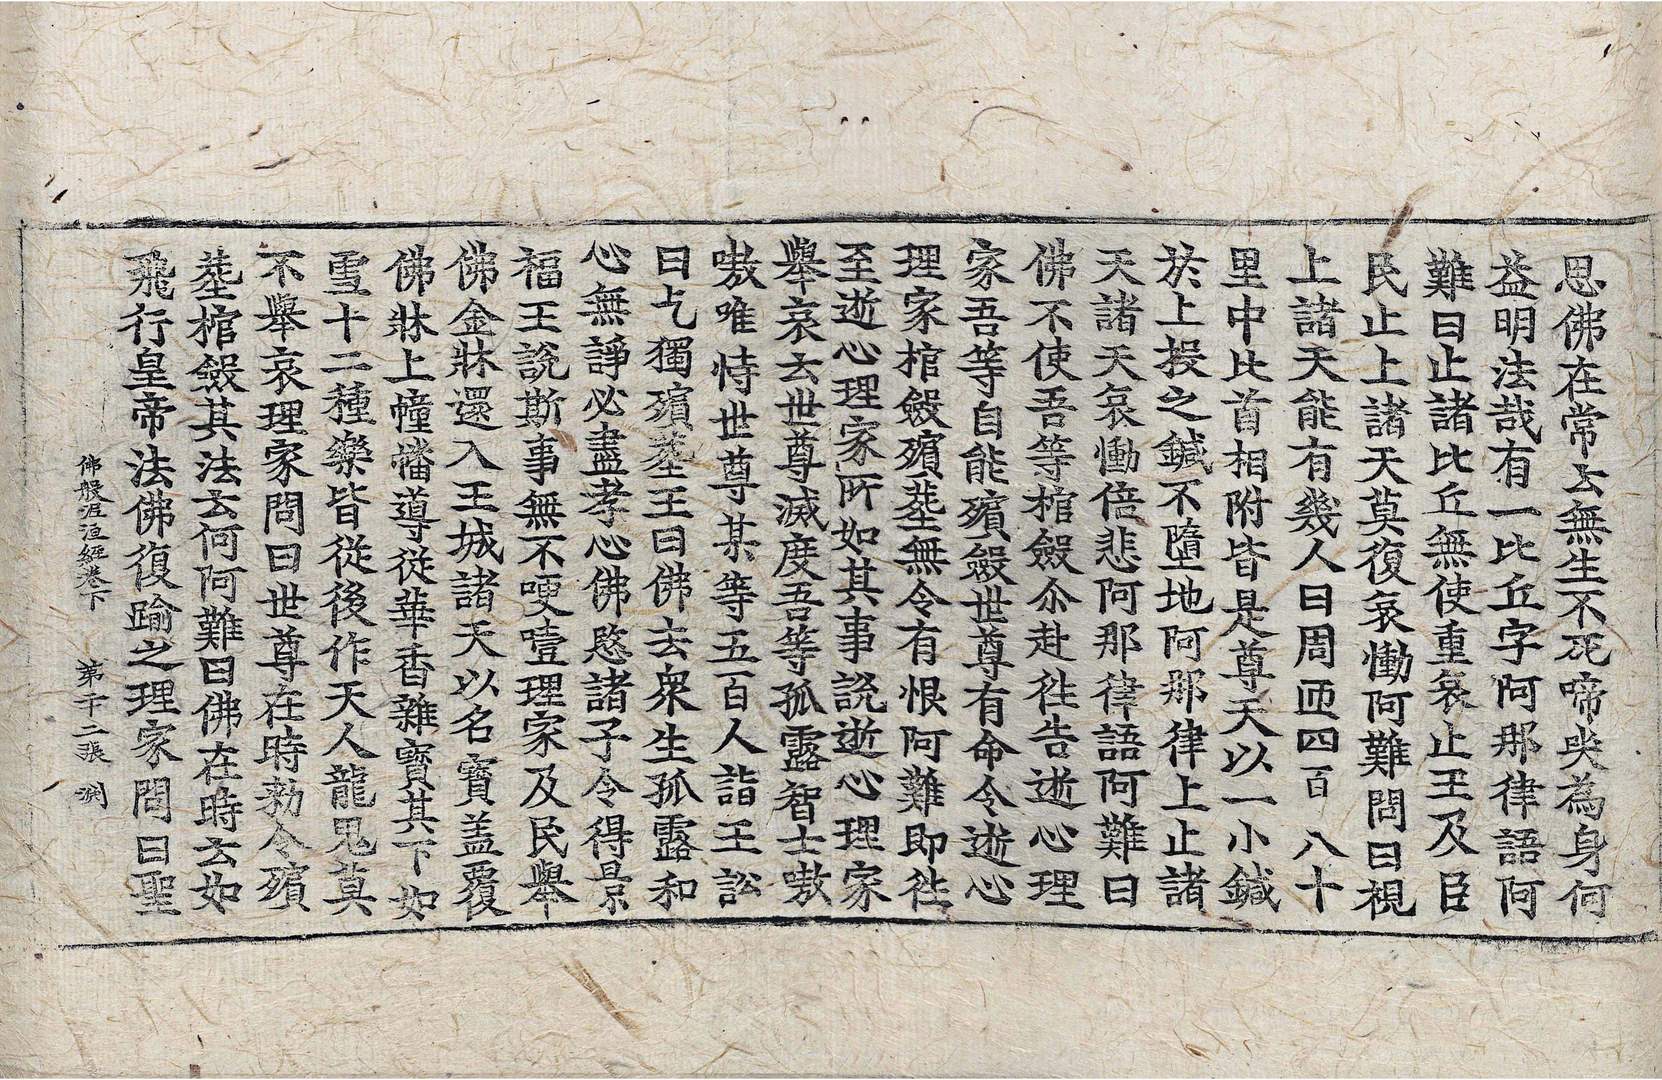 恩佛在常云無生不死啼哭為身何
益明法哉有一比丘字阿那律語阿
難曰止諸比丘無使重哀止王及臣
民止上諸天莫復哀慟阿難問曰視
上諸天能有幾人曰周匝四百八十
里中比首相附皆是尊天以一小鍼
於上投之鍼不墮地阿那律上止諸
天諸天哀慟倍悲阿那律語阿難曰
佛不使吾等棺斂尒赴徃告逝心理
家吾等自能殯斂世尊有命令逝心
理家棺斂殯塟無令有恨阿難即徃
至逝心理家所如其事說逝心理家
舉哀云世尊滅度吾等孤露智士嗷
嗷唯恃世尊某等五百人詣王訟
曰乞獨殯塟王曰佛去衆生孤露和
心無諍必盡孝心佛慜諸子令得景
福王說斯事無不哽噎理家及民舉
佛金牀還入王城諸天以名寶盖覆
佛牀上幢幡導從華香雜寶其下如
雪十二種樂皆從後作天人龍鬼莫
不舉哀理家問曰世尊在時勑令殯
塟棺斂其法云何阿難曰佛在時云如
飛行皇帝法佛復踰之理家問曰聖
佛般泥洹經卷下　第二十二張　渊